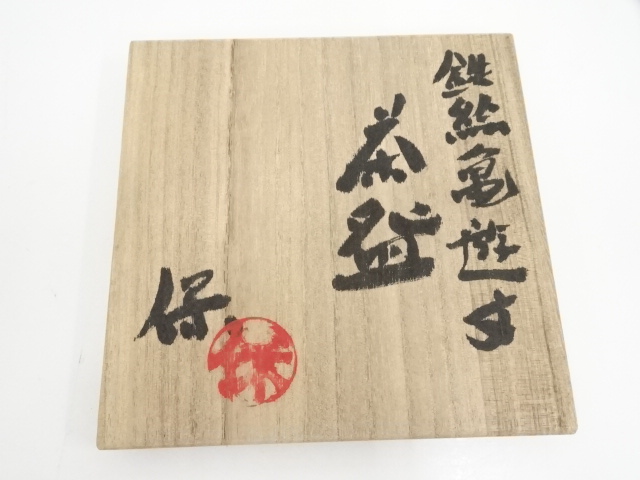 鉄絵亀遊文
茶盌
保